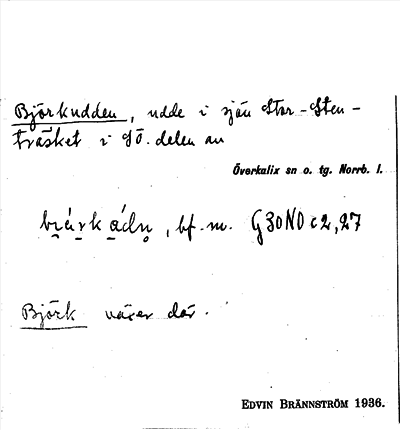 Björkudden, udde i sjön Stor-Sten-
träsket i sö. delen av
Överkalix sn o. tg. Norrb. l.
bf. m. G30NOc2,27
Björk växer där.
EDVIN BRÄNNSTRÖM 1936.